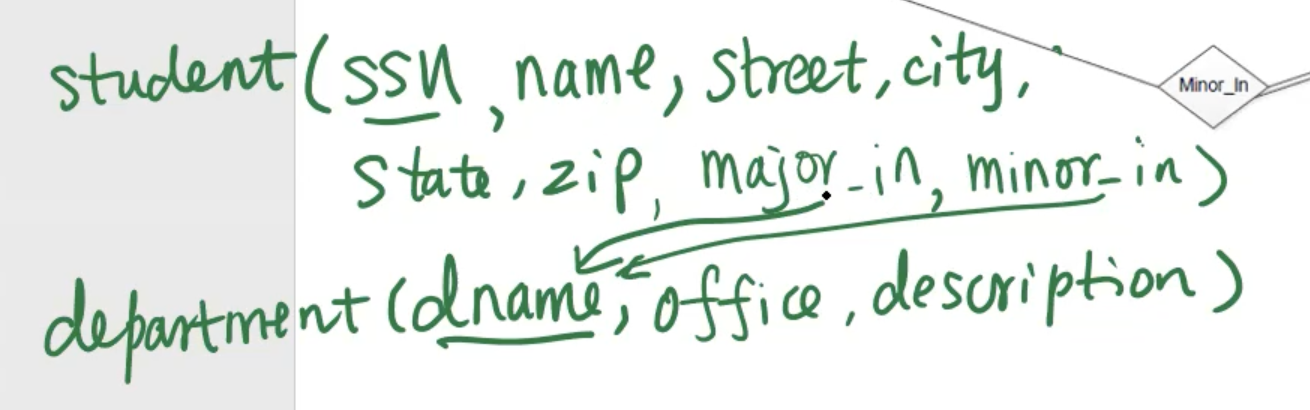 student(ssn, name, street, city,
Minor_In
state, zip, major_in, minor_in)
department(dname, office, description)